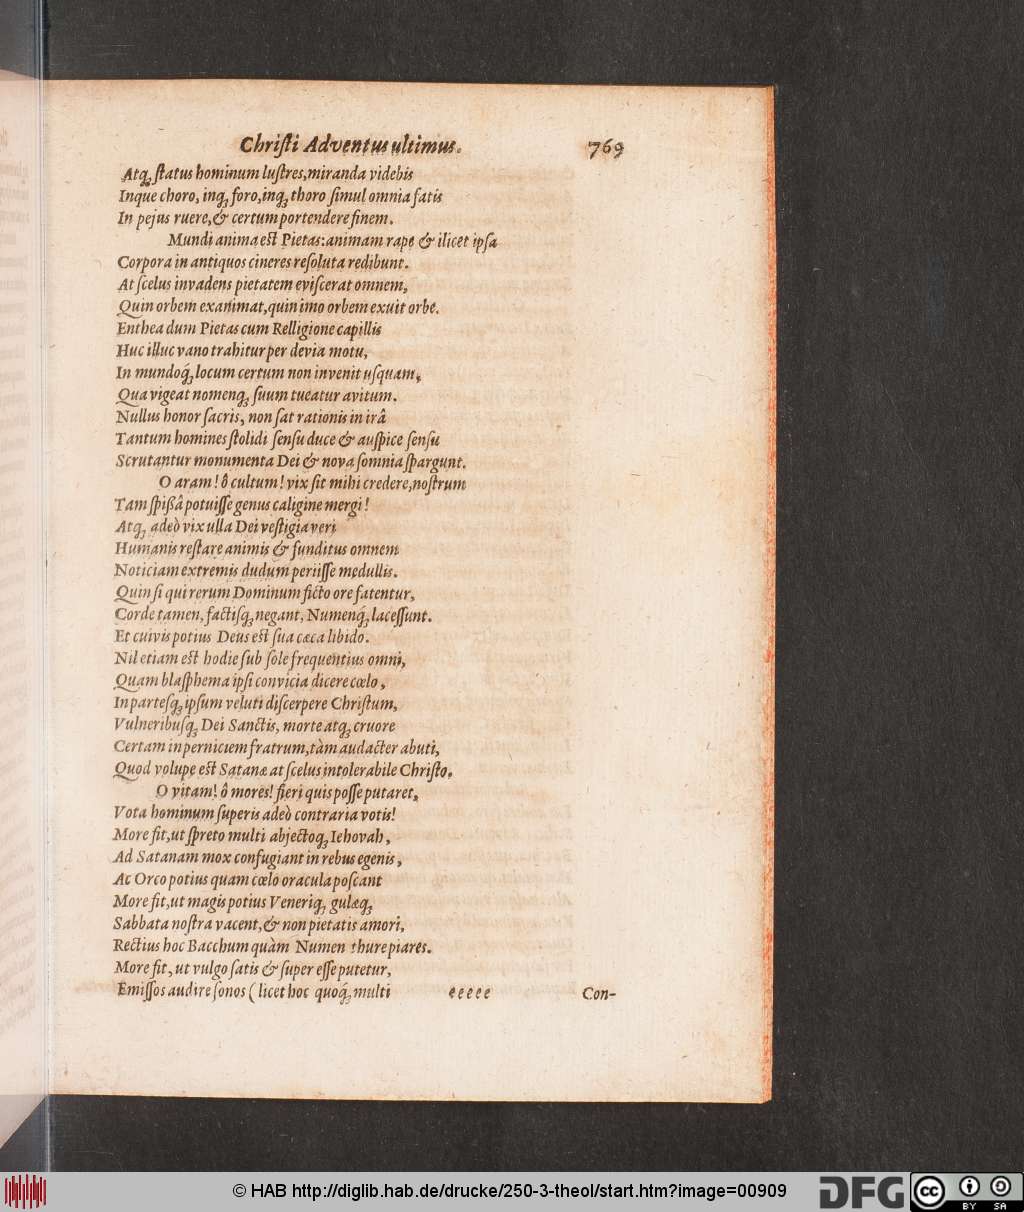 Chriſti Adventus ultimus. 769
Atq́; ſtatus hominum luſtres, miranda videbis
Inque choro, inq́; foro, inq́; thoro ſimul omnia fatis
In pejus ruere, & certum portendere finem.
Mundi anima eſt Pietas: animam rape & ilicet ipſa
Corpora in antiquos cineres reſoluta redibunt.
At ſcelus invadens pietatem eviſcerat omnem,
Quin orbem exanimat, quin imo orbem exuit orbe.
Enthea dum Pietas cum Relligione capillis
Huc illuc vano trahitur per devia motu,
In mundoq́; locum certum non invenit uſquam,
Qua vigeat nomenq́; ſuum tueatur avitum.
Nullus honor ſacris, non ſat rationis in irâ
Tantum homines ſtolidi ſenſu duce & auſpice ſenſu
Scrutantur monumenta Dei & nova ſomnia ſpargunt.
O aram! ô cultum! vix ſit mihi credere, noſtrum
Tam ſpißâ potuiſſe genus caligine mergi!
Atq́; adeò vix ulla Dei veſtigia veri
Humanis reſtare animis & funditus omnem
Noticiam extremis dudum periiſſe medullis.
Quin ſi qui rerum Dominum ficto ore fatentur,
Corde tamen, factiſq́; negant, Numenq́; laceſſunt.
Et cuivis potius Deus eſt ſua cæca libido.
Nil etiam eſt hodie ſub ſole frequentius omni,
Quam blaſphema ipſi convicia dicere cœlo,
In parteſq́; ipſum veluti diſcerpere Chriſtum,
Vulneribuſq́; Dei Sanctis, morte atq́; cruore
Certam in perniciem fratrum, tàm audacter abuti,
Quod volupe eſt Satanæ at ſcelus intolerabile Chriſto.
O vitam! ô mores! fieri quis poſſe putaret,
Vota hominum ſuperis adeò contraria votis!
More fit, ut ſpreto multi abjectoq́; Iehovah,
Ad Satanam mox confugiant in rebus egenis,
Ac Orco potius quam cœlo oracula poſcant
More fit, ut magis potius Veneriq́; gulæq́;
Sabbata noſtra vacent, & non pietatis amori,
Rectius hoc Bacchum quàm Numen thure piares.
More fit, ut vulgo ſatis & ſuper eſſe putetur,
Emiſſos audire ſonos (licet hoc quoq́; multi
eeeee Con-
© HAB http://diglib.hab.de/drucke/250-3-theol/start.htm?image=00909
DFG
cc BY SA